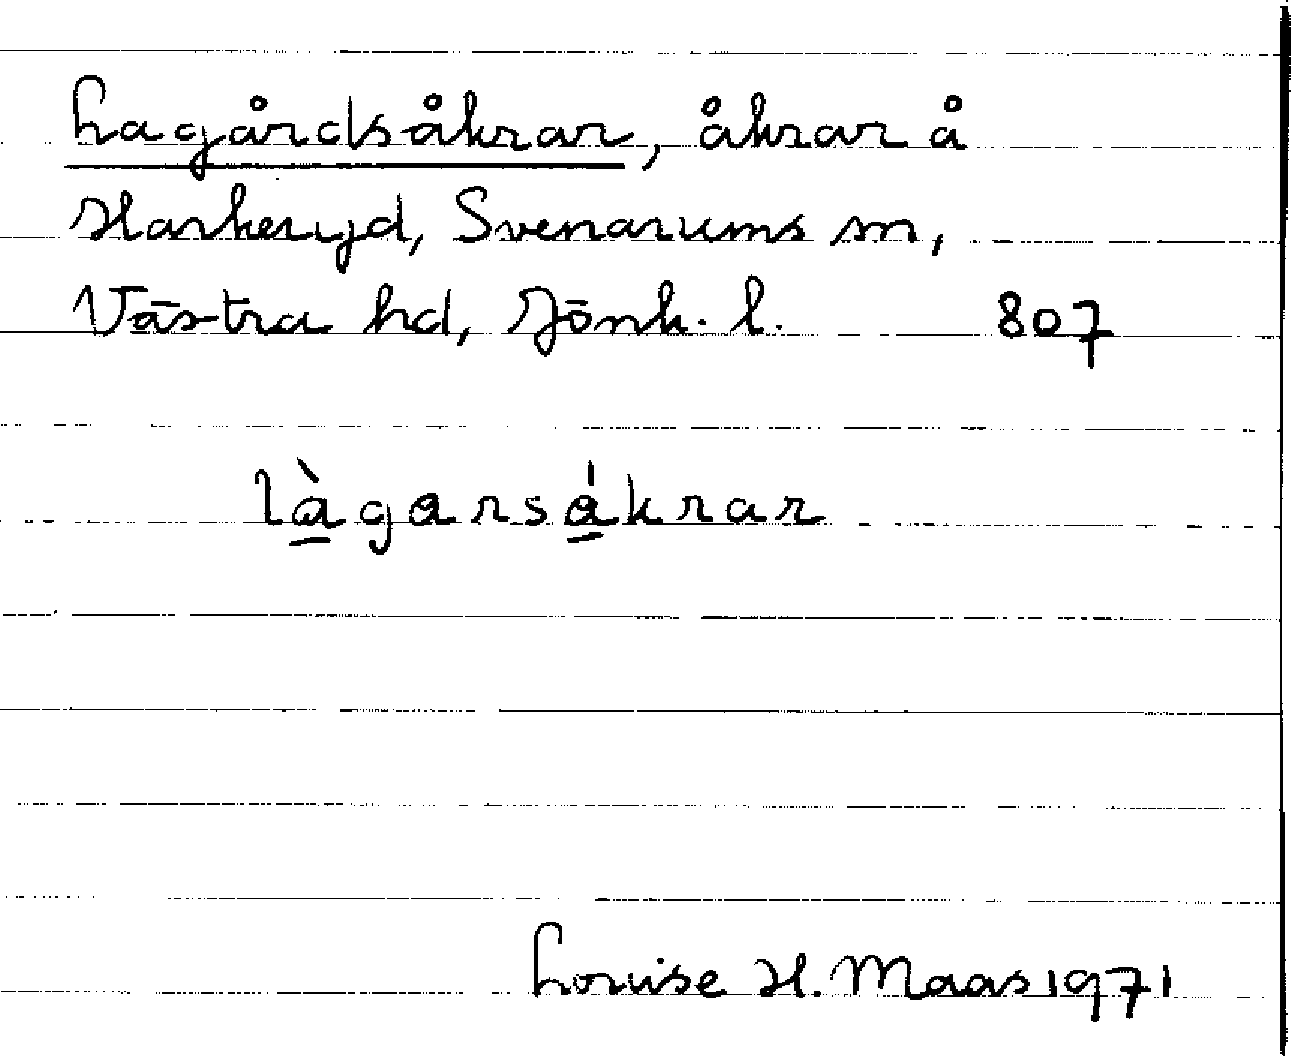 Lagårdsåkrar, åkrar å
Harkeryd, Svenarums sn,
Västra hd, Jönk. l. 807
làgarsákrar
Louise H. Maas 1971